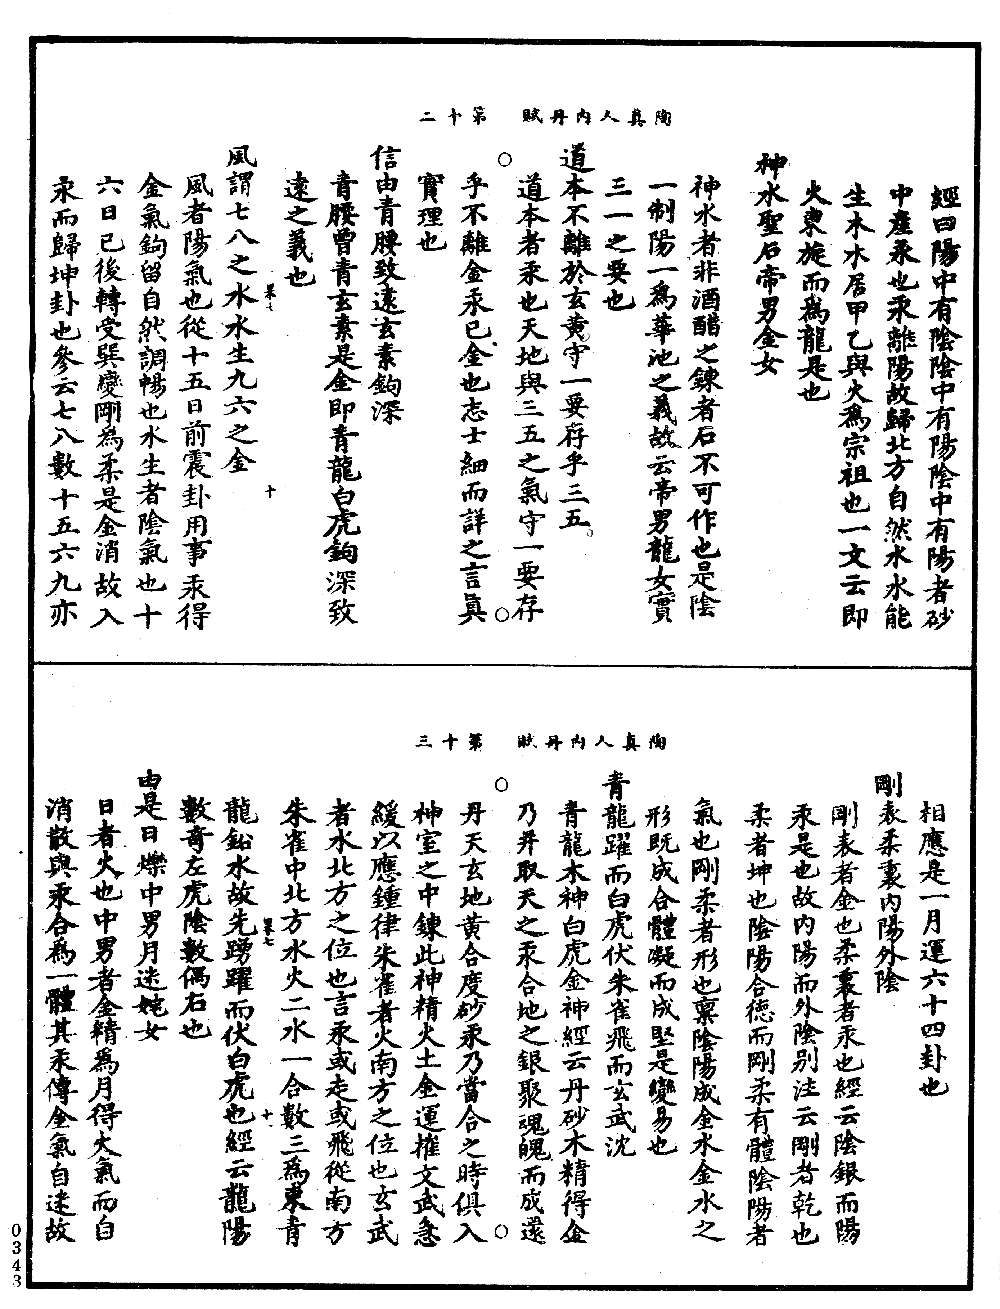 陶真人內丹賦　第十二
經曰陽中有陰陰中有陽陰中有陽者砂
中產汞也汞離陽故歸北方自然水水能
生木木居甲乙與火為宗祖也一文云即
火東旋而為龍是也
神水聖石帝男金女
神水者非酒醋之鍊者石不可作也是陰
一制陽一為華池之義故云帝男龍女實
三一之要也
道本不離於玄黃守一要存乎三五
道本者汞也天地與三五之氣守一要存
乎不離金汞已金也志士細而詳之言真
實理也
信由青腰致遠玄素鉤深
青腰曾青玄素是金即青龍白虎鉤深致
遠之義也
風謂七八之水水生九六之金
風者陽氣也從十五日前震卦用事汞得
金氣鉤留自然調暢也水生者陰氣也十
六日已後轉受巽變剛為柔是金消故入
汞而歸坤卦也參云七八數十五六九亦
陶真人內丹賦　第十三
相應是一月運六十四卦也
剛表柔裏內陽外陰
剛表者金也柔裏者汞也經云陰銀而陽
汞是也故內陽而外陰別注云剛者乾也
柔者坤也陰陽合德而剛柔有體陰陽者
氣也剛柔者形也稟陰陽成金水金水之
形既成合體凝而成堅是變易也
青龍躍而白虎伏朱雀飛而玄武沈
青龍木神白虎金神經云丹砂木精得金
乃并取天之汞合地之銀聚魂魄而成遂
丹天玄地黃合度砂汞乃當合之時俱入
神室之中鍊此神精火土金運摧文武急
緩以應鍾律朱雀者火南方之位也玄武
者水北方之位也言汞或走或飛從南方
朱雀中北方水火二水一合數三為東青
龍鉛水故先踴躍而伏白虎也經云龍陽
數奇左虎陰數偶右也
由是日爍中男月迷姹女
日者火也中男者金精為月得火氣而自
消散與汞合為一體其汞傳金氣自迷故
0343